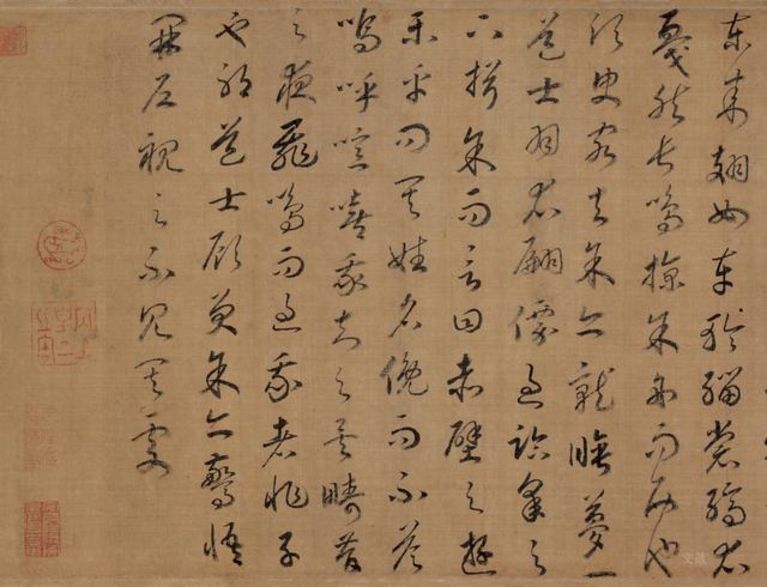 東來翅如車輪緇裳縞衣
戛然長鳴掠余舟而西也
須臾客去余亦就睡夢一
道士羽衣翩僊過臨皋之
下揖余而言曰赤壁之遊
樂乎問其姓名俛而不答
嗚呼噫嘻我知之矣疇昔
之夜飛鳴而過我者非子
也耶道士顧笑余亦驚悟
開戶視之不見其處